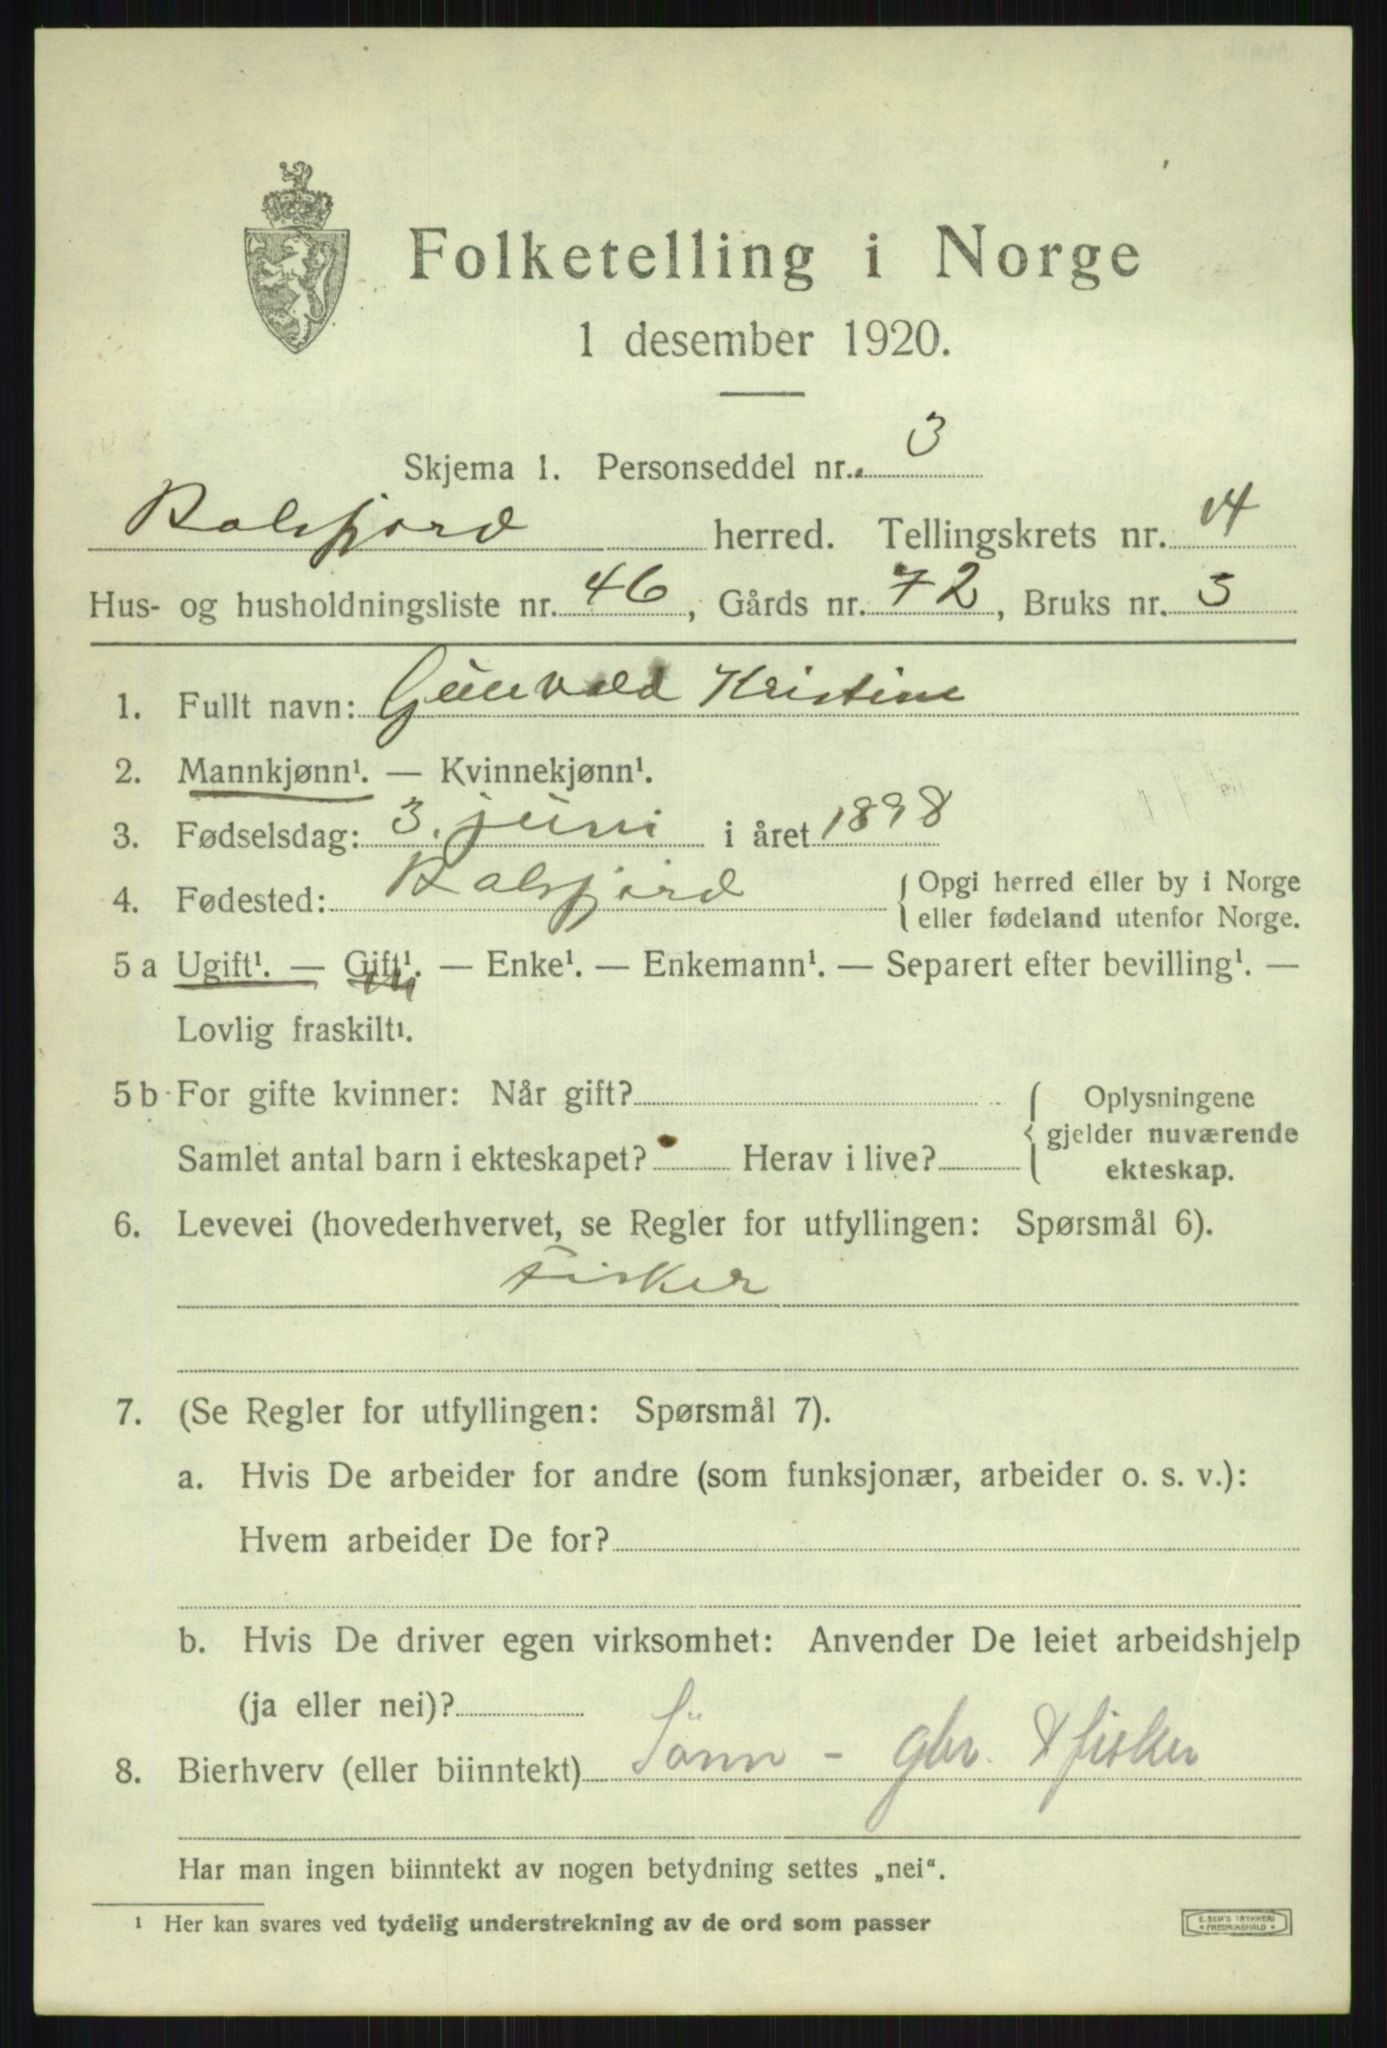 Folketelling i Norge
1 desember 1920.
Skjema 1. Personseddel nr. 3
Balsfjord herred. Tellingskrets nr. 14
Hus- og husholdningsliste nr. 46, Gårds nr. 72, Bruks nr. 3
1. Fullt navn: Gunvald Kristine
2. Mannkjønn¹. — Kvinnekjønn¹.
3. Fødselsdag: 3. juni i året 1898
4. Fødested: Balsfjord { Opgi herred eller by i Norge
eller fødeland utenfor Norge.
5 a Ugift¹. — Gift¹. — Enke¹. — Enkemann¹. — Separert efter bevilling¹. —
Lovlig fraskilt¹.
5 b For gifte kvinner: Når gift? { Oplysningene
gjelder nuværende
Samlet antal barn i ekteskapet? Herav i live?
ekteskap.
6. Levevei (hovederhvervet, se Regler for utfyllingen: Spørsmål 6).
Fisker
7. (Se Regler for utfyllingen: Spørsmål 7).
a. Hvis De arbeider for andre (som funksjonær, arbeider o. s. v.):
Hvem arbeider De for?
b. Hvis De driver egen virksomhet: Anvender De leiet arbeidshjelp
(ja eller nei)?
8. Bierhverv (eller biinntekt) Sönn - gbr. & fisker
Har man ingen biinntekt av nogen betydning settes „nei“.
¹ Her kan svares ved tydelig understrekning av de ord som passer
E. SEM'S TRYKKERI
FREDRIKSHALD